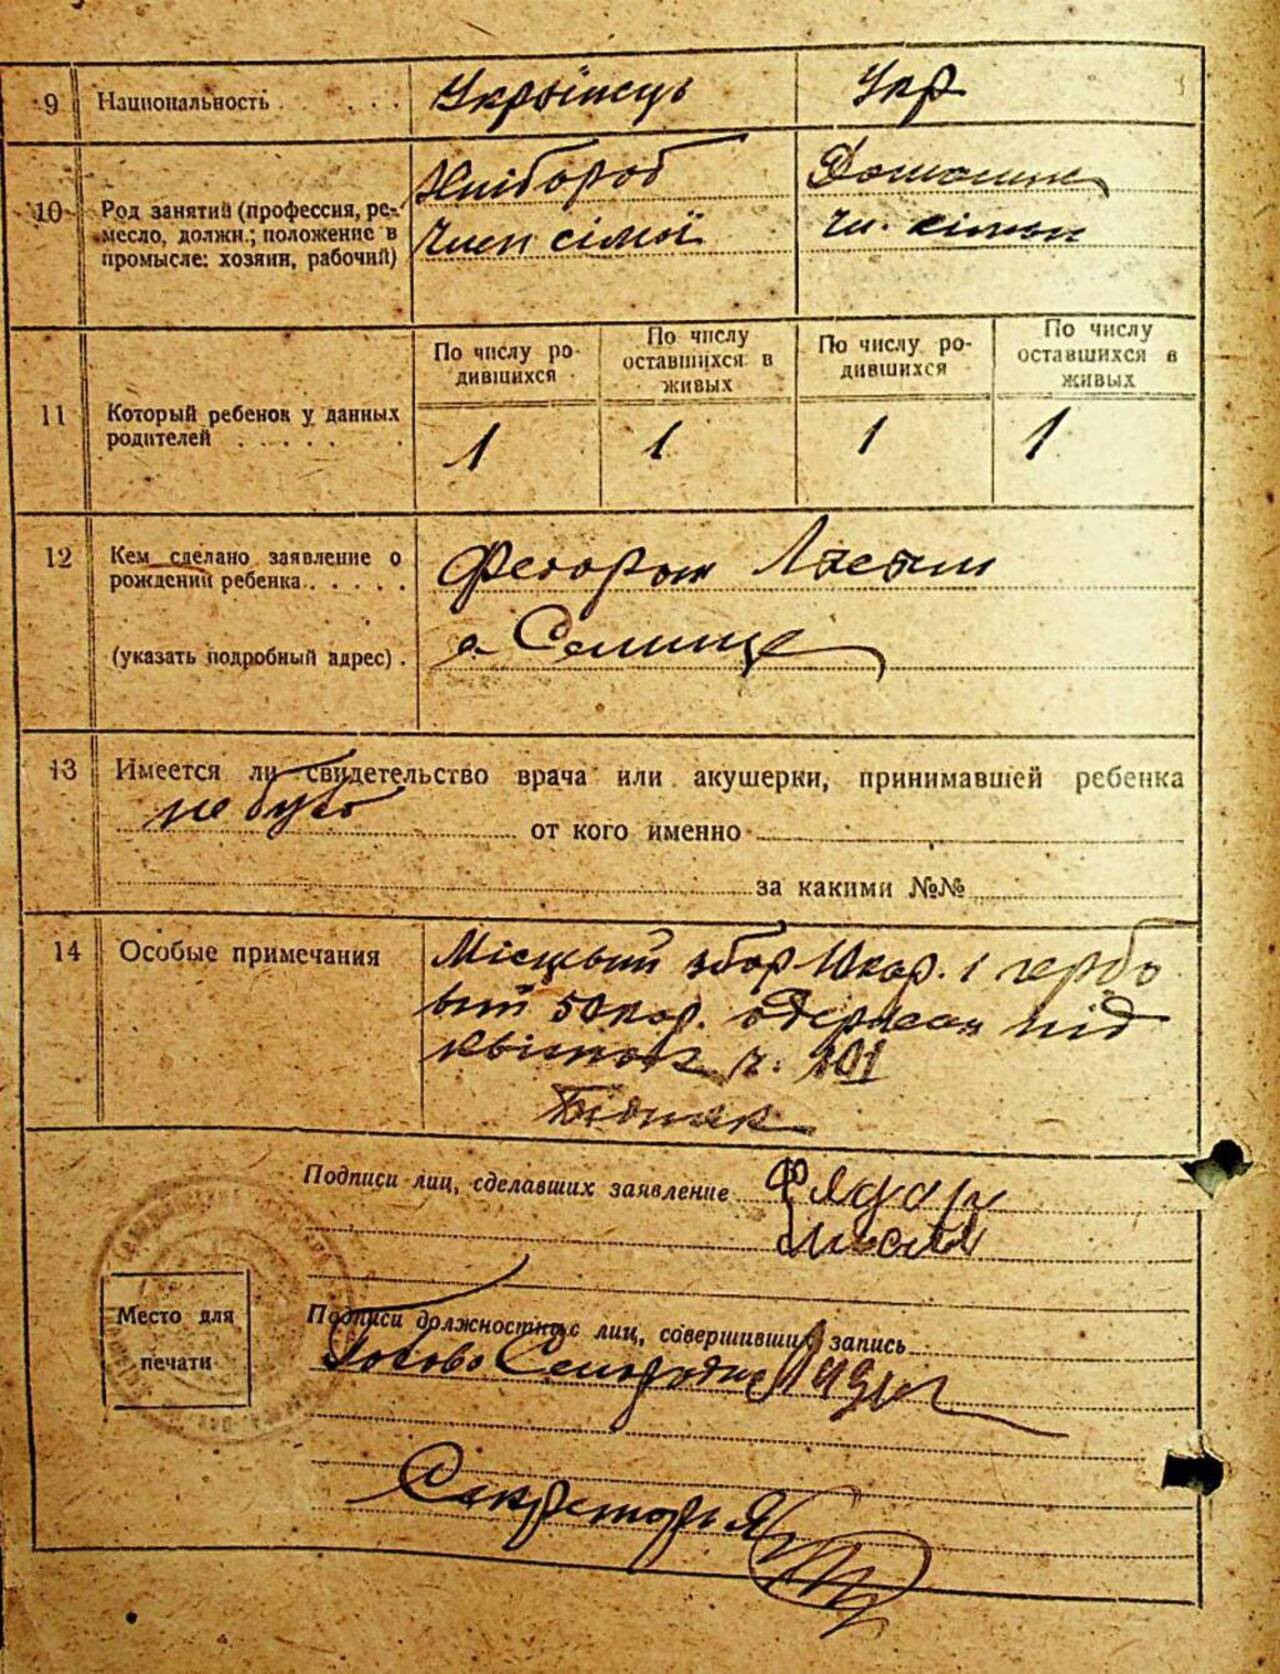 9 Национальность . . . . . . Украінець Укр
10 Род занятий (профессия, ре-
месло, должн.; положение в
промысле: хозяин, рабочий)
Хлібороб Домашня
Член сімьї чл. сімьи
По числу ро-
дившихся
По числу
оставшихся в
живых
По числу ро-
дившихся
По числу
оставшихся в
живых
11 Который ребенок у данных
родителей . . . . . .
1 1 1 1
12 Кем сделано заявление о
рождении ребенка. . . . . .
(указать подробный адрес) .
Федором
с. Селище
13 Имеется ли свидетельство врача или акушерки, принимавшей ребенка
не було от кого именно
за какими №№
14 Особые примечания
Місцевий збор 10 кар. і гербо
вий 50 кор. одержан під
квіток ч. 101
Бідняк
Подписи лиц, сделавших заявление
Место для
печати
Подписи должностных лиц, совершивших запись
Голова Сельради
Секретарь